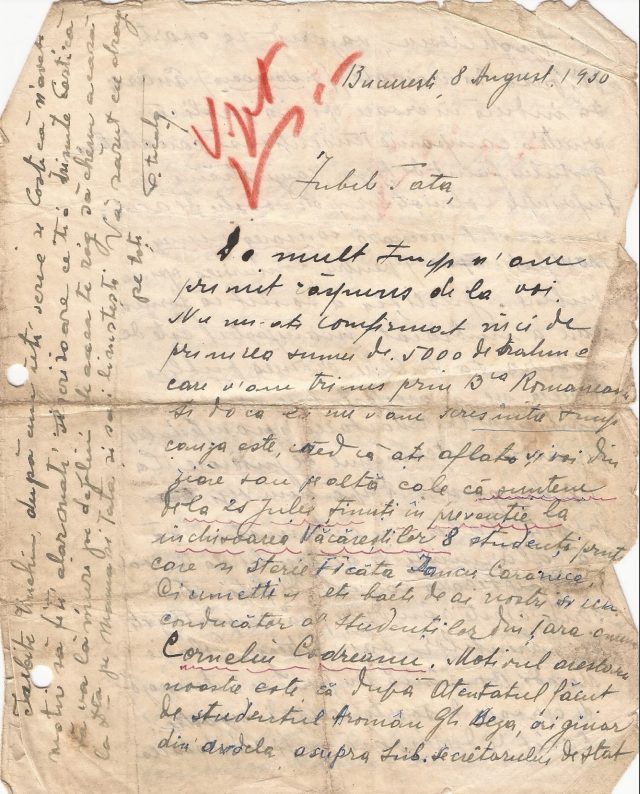 București, 8 August. 1930
Iubite Tata,
De mult timp n'am
primit răspuns de la voi.
Nu mi-ati confirmat nici de
primirea sumei de 5000 de drahme
care v'am trimis prin B-ca Romaneas
Și daca eu nu v'am scris între timp
cauza este, cred că ați aflat și voi din
ziare sau pe altă cale că suntem
de la 25 Julie ținuți în prevenție la
închisoarea Văcăreștilor 8 studenți print
care și Sterie Ficăta Iancu Caranica,
Ciumetti și eti baeți de ai nostri și un
conducător al studenților din țara
Corneliu Codreanu. Motivul arestarii
noastre este că după Atentatul făcut
de studentul Aromân Gh Beza, originar
din avdela asupra sub. secretarului de stat
Iarbite după cum îți scrie și Costică n'aveti
motiv să fiți alarmați, și scrisoare ce ti-a trimite Costică
să va lămurească pe deplin
la Mama Tata și să-i liniștești. Vă sărut cu drag
pe toți